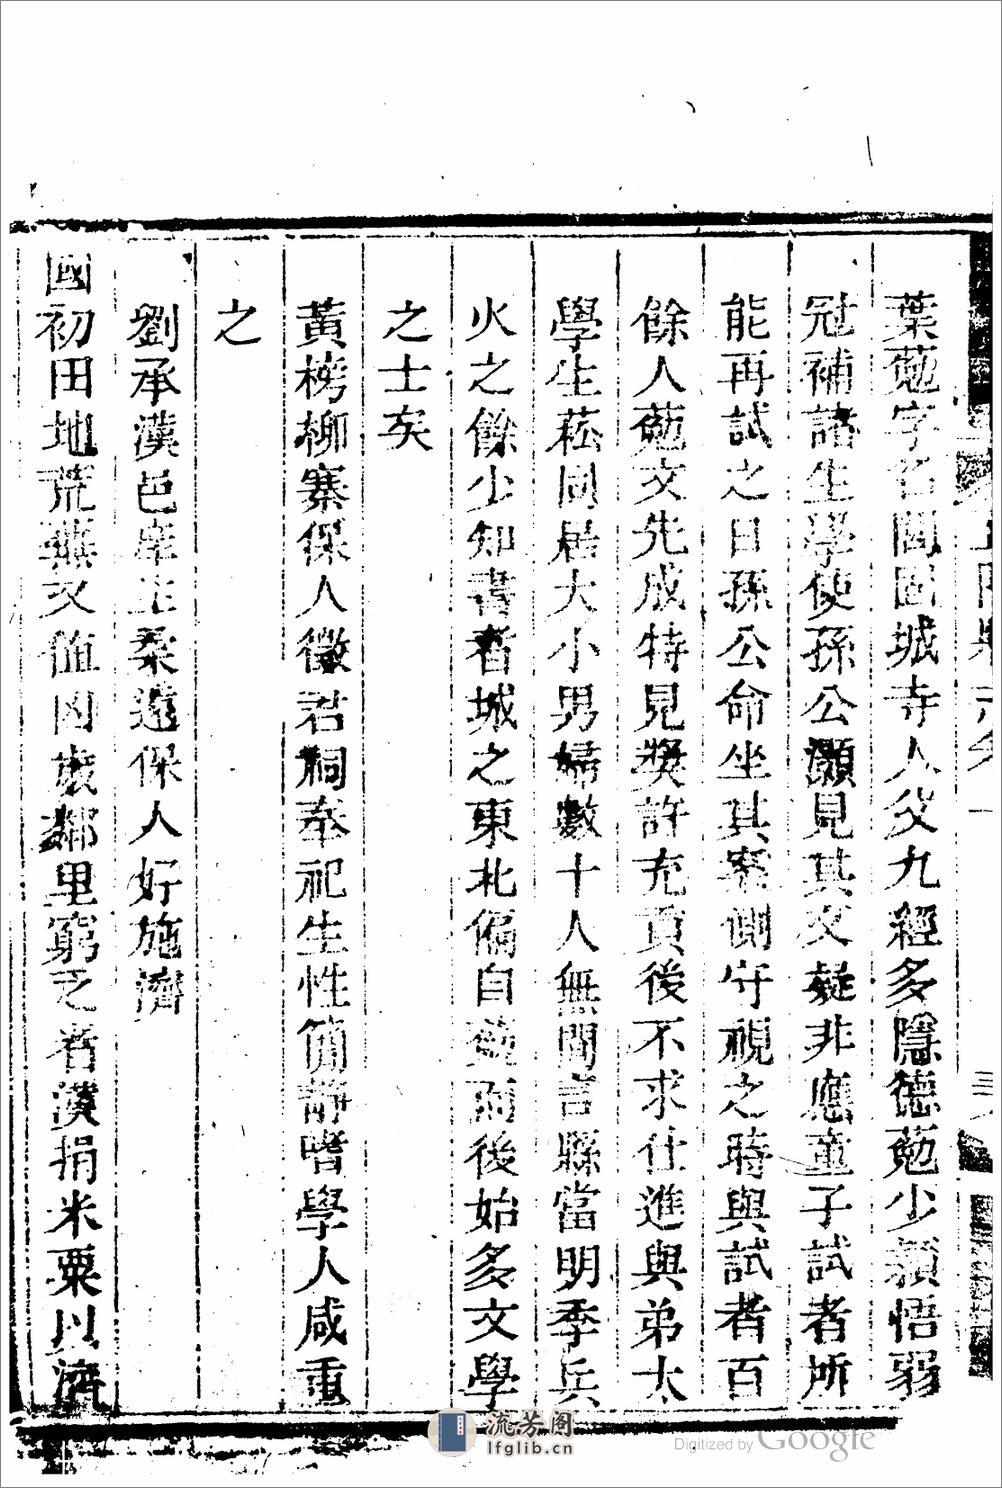 葉葂字名閭固城寺人父九經多隱德葂少穎悟弱
冠補諸生學使孫公灝見其文疑非應童子試者所
能再試之日孫公命坐其案側守視之時與試者百
餘人葂文先成特見獎許充貢後不求仕進與弟太
學生菘同居大小男婦數十人無間言縣當明季兵
火之餘少知書者城之東北偏自葂而後始多文學
之士矣
黃榜柳寨保人徵君祠奉祀生性簡靜嗜學人咸重
之
劉承漢邑庠生柔遠保人好施濟
國初田地荒蕪又值凶歲鄰里窮乏者漢捐米粟以濟
流芳阁
lfglib.cn
Digitized by Google